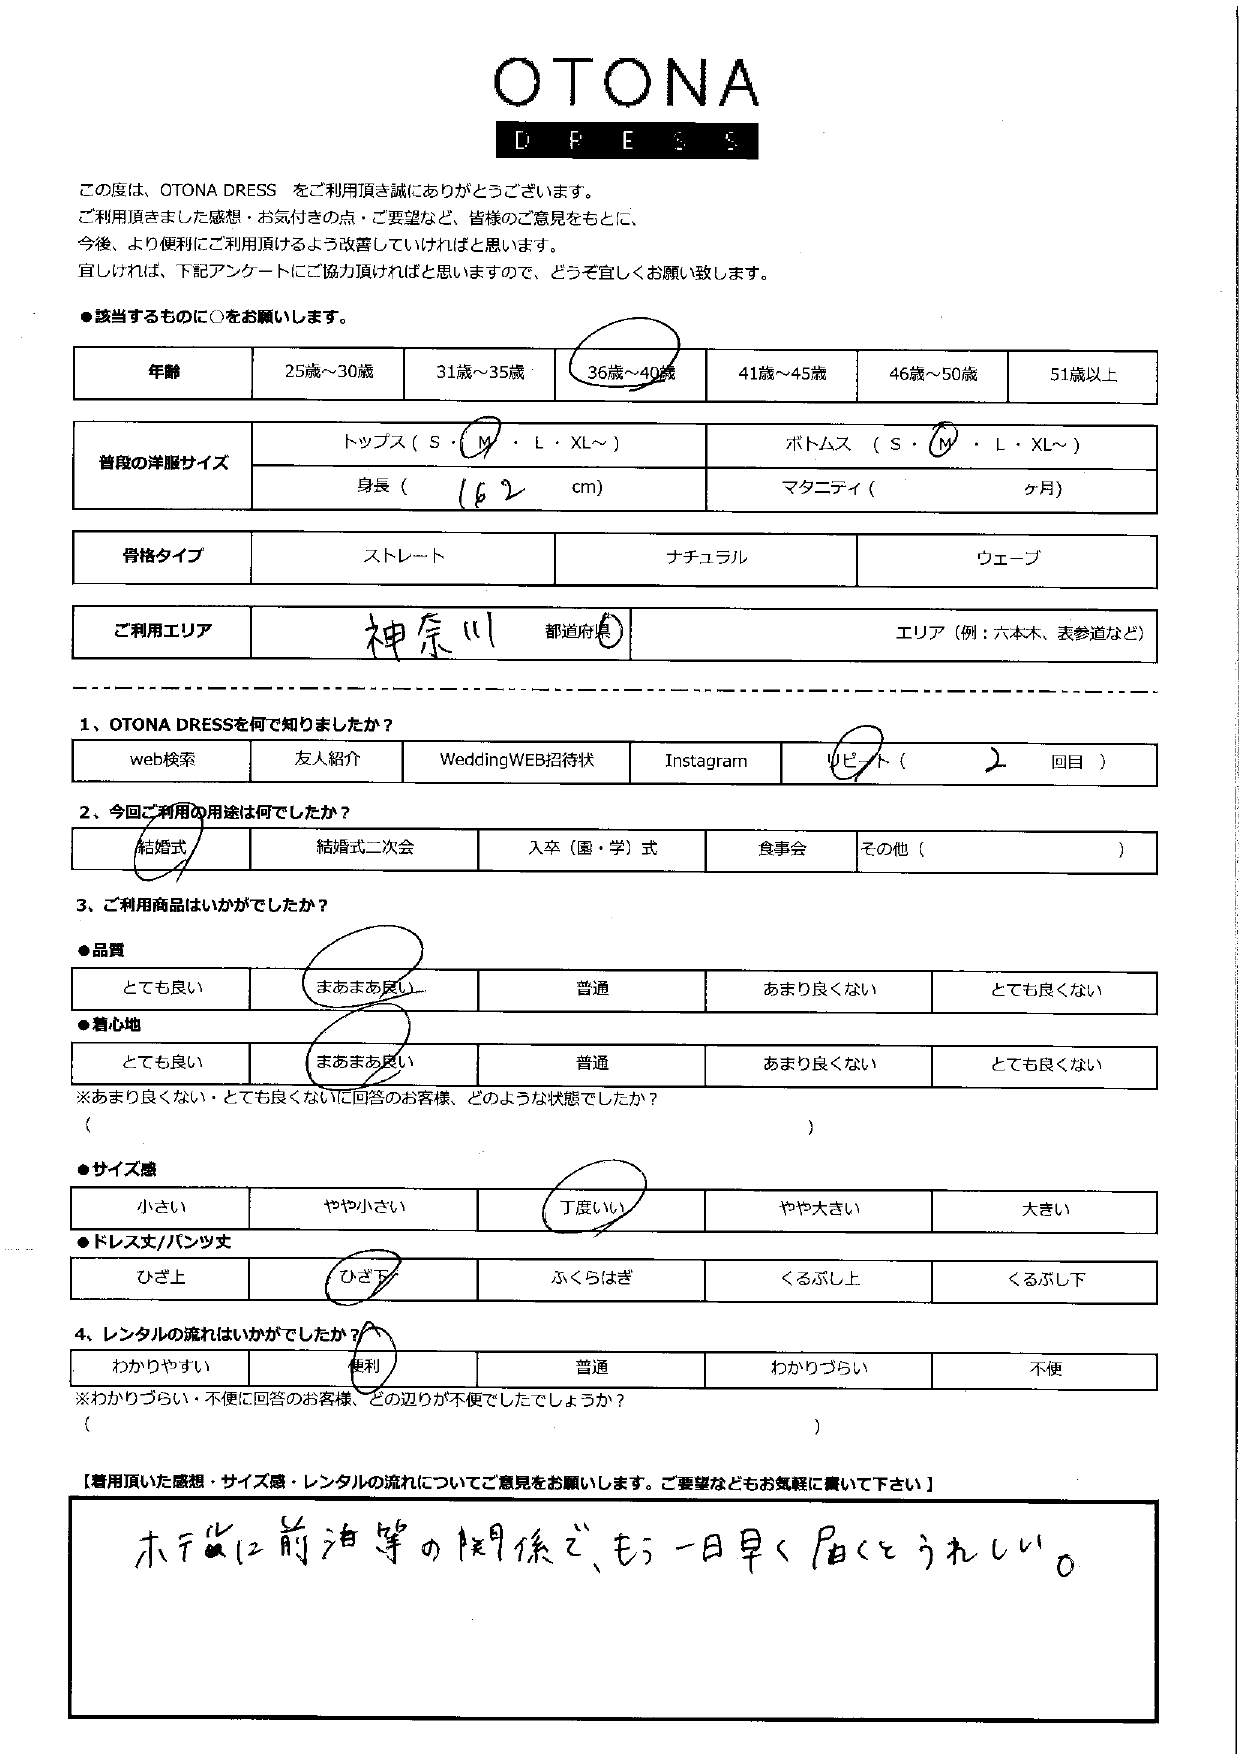 OTONA
DRESS
この度は、OTONA DRESS　をご利用頂き誠にありがとうございます。
ご利用頂きました感想・お気付きの点・ご要望など、皆様のご意見をもとに、
今後、より便利にご利用頂けるよう改善していければと思います。
宜しければ、下記アンケートにご協力頂ければと思いますので、どうぞ宜しくお願い致します。
●該当するものに○をお願いします。
年齢 25歳～30歳 31歳～35歳 36歳～40歳 41歳～45歳 46歳～50歳 51歳以上
普段の洋服サイズ トップス ( S ・ M ・ L ・ XL～ ) ボトムス ( S ・ M ・ L ・ XL～ )
身長 ( 162 cm) マタニティ ( ヶ月)
骨格タイプ ストレート ナチュラル ウェーブ
ご利用エリア 神奈川 都道府県 エリア（例：六本木、表参道など）
1、OTONA DRESSを何で知りましたか？
web検索 友人紹介 WeddingWEB招待状 Instagram リピート ( 2 回目 )
2、今回ご利用の用途は何でしたか？
結婚式 結婚式二次会 入卒（園・学）式 食事会 その他 ( )
3、ご利用商品はいかがでしたか？
●品質
とても良い まあまあ良い 普通 あまり良くない とても良くない
●着心地
とても良い まあまあ良い 普通 あまり良くない とても良くない
※あまり良くない・とても良くないに回答のお客様、どのような状態でしたか？
( )
●サイズ感
小さい やや小さい 丁度いい やや大きい 大きい
●ドレス丈/パンツ丈
ひざ上 ひざ下 ふくらはぎ くるぶし上 くるぶし下
4、レンタルの流れはいかがでしたか？
わかりやすい 便利 普通 わかりづらい 不便
※わかりづらい・不便に回答のお客様、どの辺りが不便でしたでしょうか？
( )
【着用頂いた感想・サイズ感・レンタルの流れについてご意見をお願いします。ご要望などもお気軽に書いて下さい】
ホテルに前泊等の関係で、もう一日早く届くとうれしい。